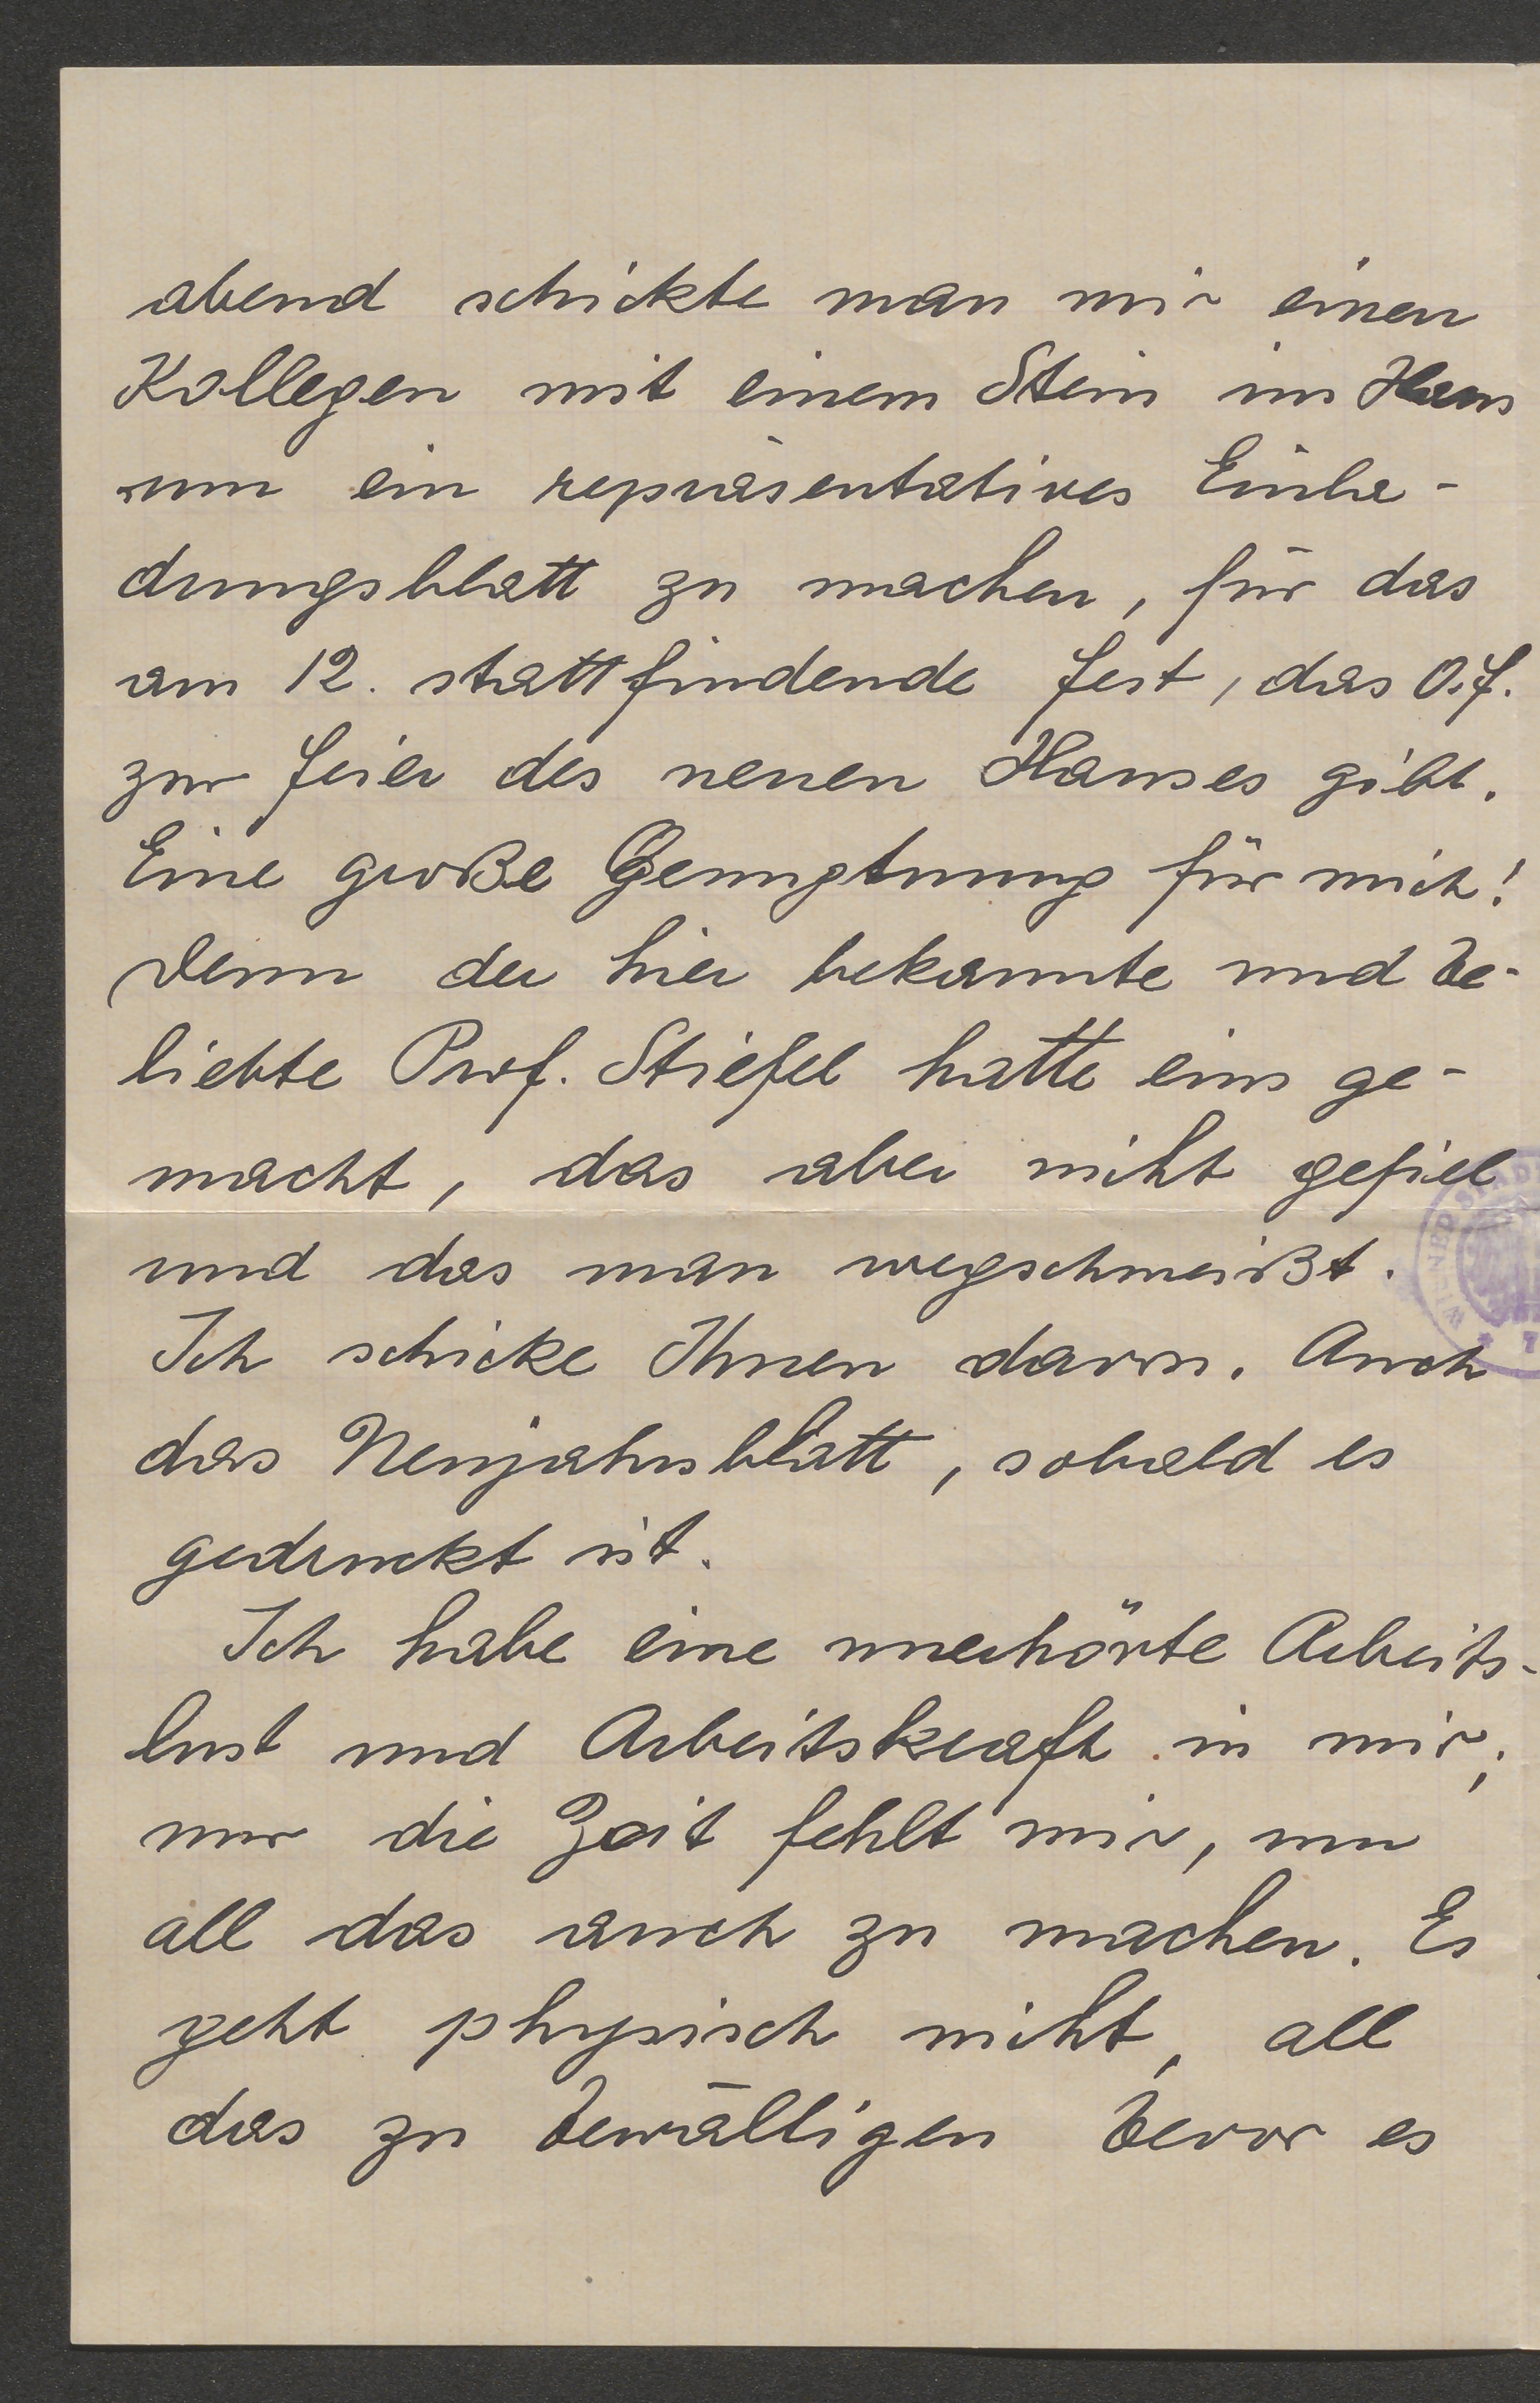 abend schickte man mir einen
Kollegen mit einem Stein ins Haus
um ein repräsentatives Einla-
dungsblatt zu machen, für das
am 12. stattfindende Fest, das O.F.
zur Feier des neuen Hauses gibt.
Eine große Genugtuung für mich!
Denn der hier bekannte und be-
liebte Prof. Stiefel hatte eins ge-
macht, das aber nicht gefiel
und das man wegschmeißt.
Ich schicke Ihnen davon. Auch
das Neujahrsblatt, sobald es
gedruckt ist.
Ich habe eine unerhörte Arbeits-
lust und Arbeitskraft in mir;
nur die Zeit fehlt mir, um
all das auch zu machen. Es
geht physisch nicht, all
das zu bewältigen bevor es